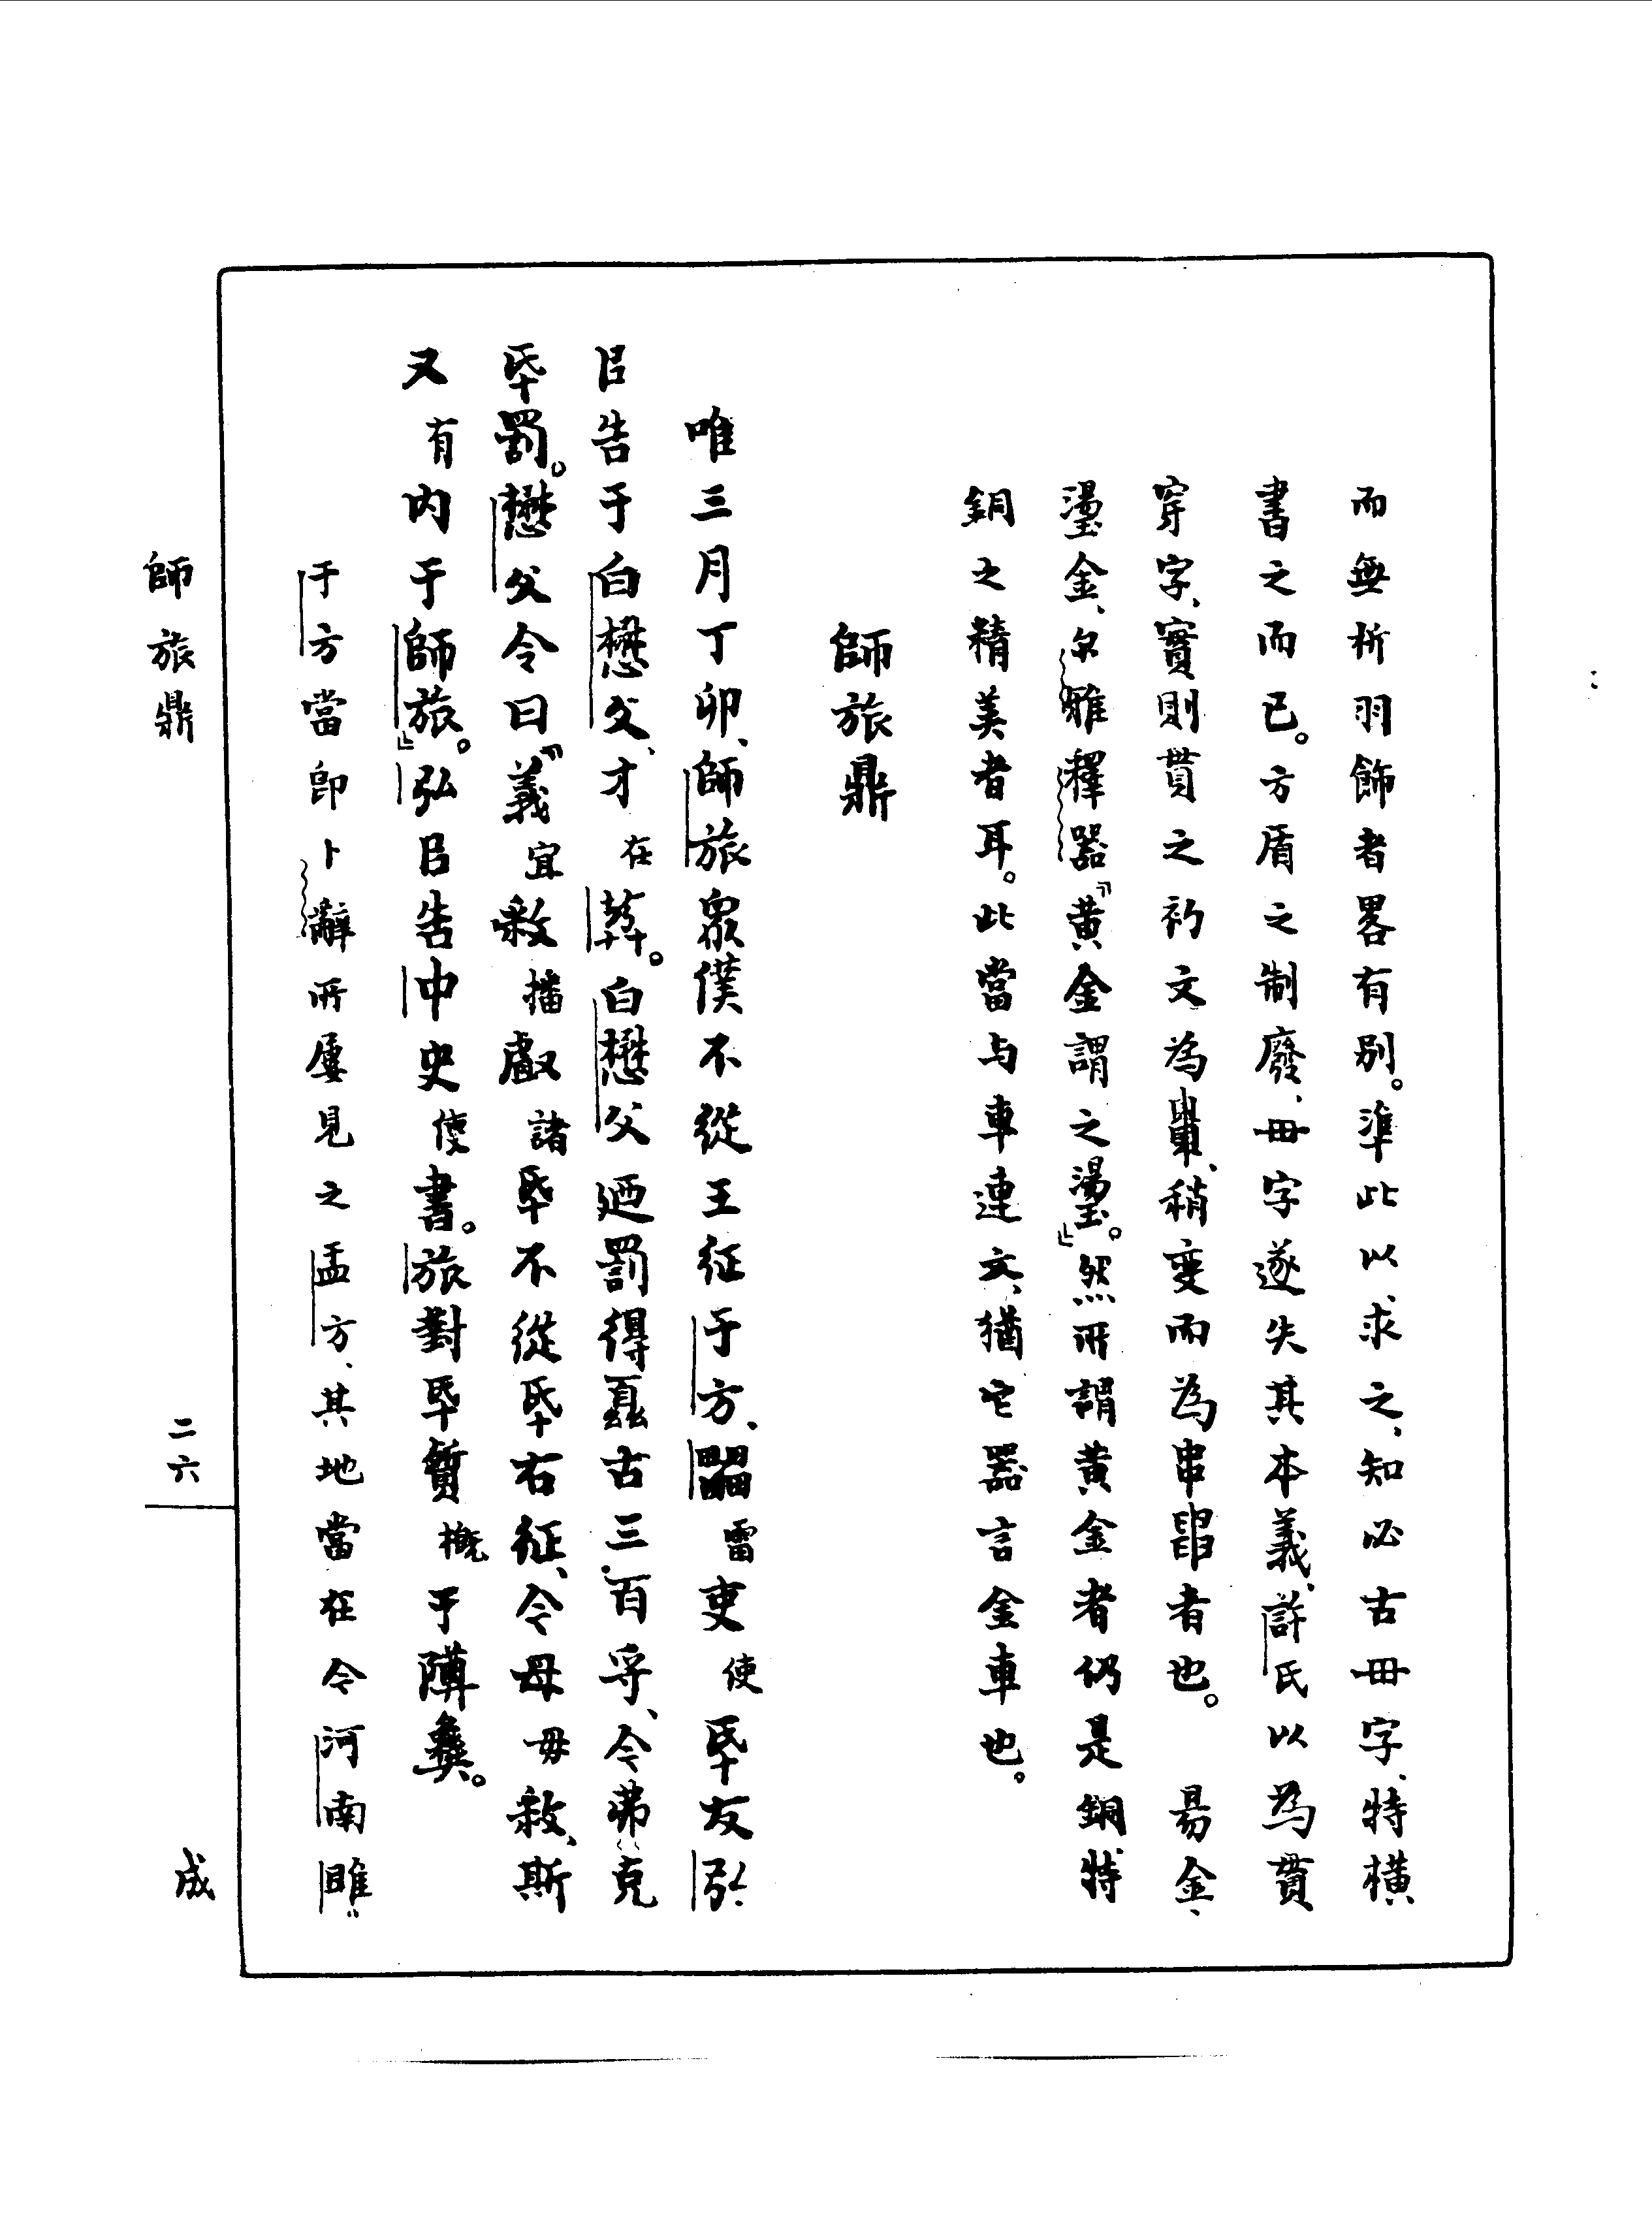 而無析羽飾者畧有別。準此以求之、知必古毌字、特橫
書之而已。方盾之制廢、毌字遂失其本義、許氏以為貫
穿字、實則貫之初文為、稍變而為串者也。 昜金、
璗金、尔雅釋器『黃金謂之璗』。然所謂黃金者仍是銅、特
銅之精美者耳。此當与車連文、猶它器言金車也。
師旅鼎
唯三月丁卯、師旅眾僕不從王征于方、雷吏使氒友弘
㠯告于白懋父、才在。白懋父廼罰得古三百寽、今弗克
氒罰。懋父令曰『義宜播諸氒不從氒右征、今母毋、斯
又有内于師旅』。弘㠯告中史使書。旅對氒概于彝。
于方當即卜辭所屢見之盂方、其地當在今河南睢
師旅鼎
二六
成